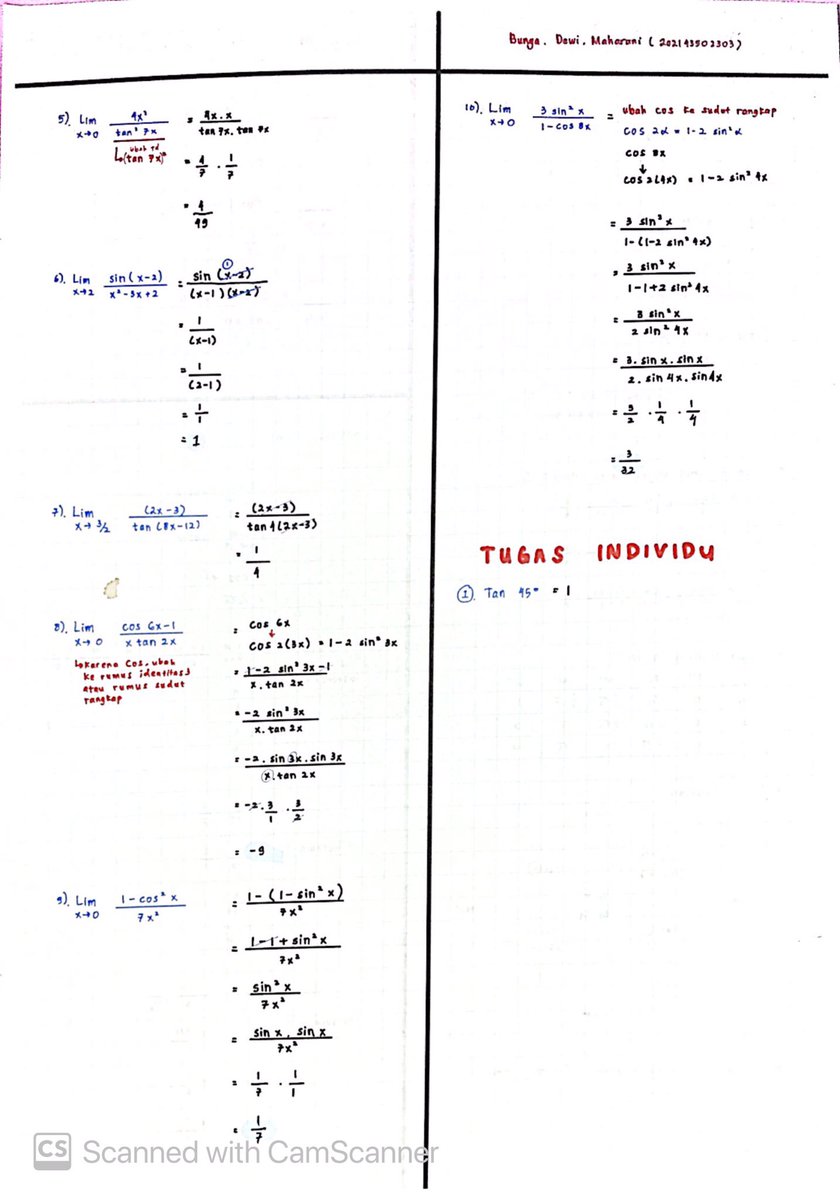 Bunga. Dewi. Maharani (202143502303)
5). Lim x→0 4x²/tan² 7x = 4x.x/tan 7x. tan 7x
↳ ubah td (tan 7x)²
= 4/7 . 1/7
= 4/49
6). Lim x→2 sin(x-2)/x²-3x+2 = sin (x-2)/(x-1)(x-2) ①
= 1/(x-1)
= 1/(2-1)
= 1/1
= 1
7). Lim x→3/2 (2x-3)/tan (8x-12) = (2x-3)/tan 4(2x-3)
= 1/4
8). Lim x→0 cos 6x-1/x tan 2x = cos 6x
↓
cos 2(3x) = 1-2 sin² 3x
↳ Karena Cos, ubah
ke rumus identitas)
atau rumus sudut
rangkap
= 1-2 sin² 3x-1/x. tan 2x
= -2 sin² 3x/x. tan 2x
= -2. sin 3x. sin 3x/x. tan 2x
= -2. 3/1 . 3/2
= -9
9). Lim x→0 1-cos² x/7x² = 1-(1-sin² x)/7x²
= 1-1+sin² x/7x²
= sin² x/7x²
= sin x. sin x/7x²
= 1/7 . 1/1
= 1/7
10). Lim x→0 3 sin² x/1-cos 8x = ubah cos ke sudut rangkap
cos 2α = 1-2 sin² α
cos 8x
↓
cos 2(4x) = 1-2 sin² 4x
= 3 sin² x/1-(1-2 sin² 4x)
= 3 sin² x/1-1+2 sin² 4x
= 3 sin² x/2 sin² 4x
= 3. sin x. sin x/2. sin 4x. sin 4x
= 3/2 . 1/4 . 1/4
= 3/32
TUGAS INDIVIDU
① Tan 45° = 1
CS Scanned with CamScanner